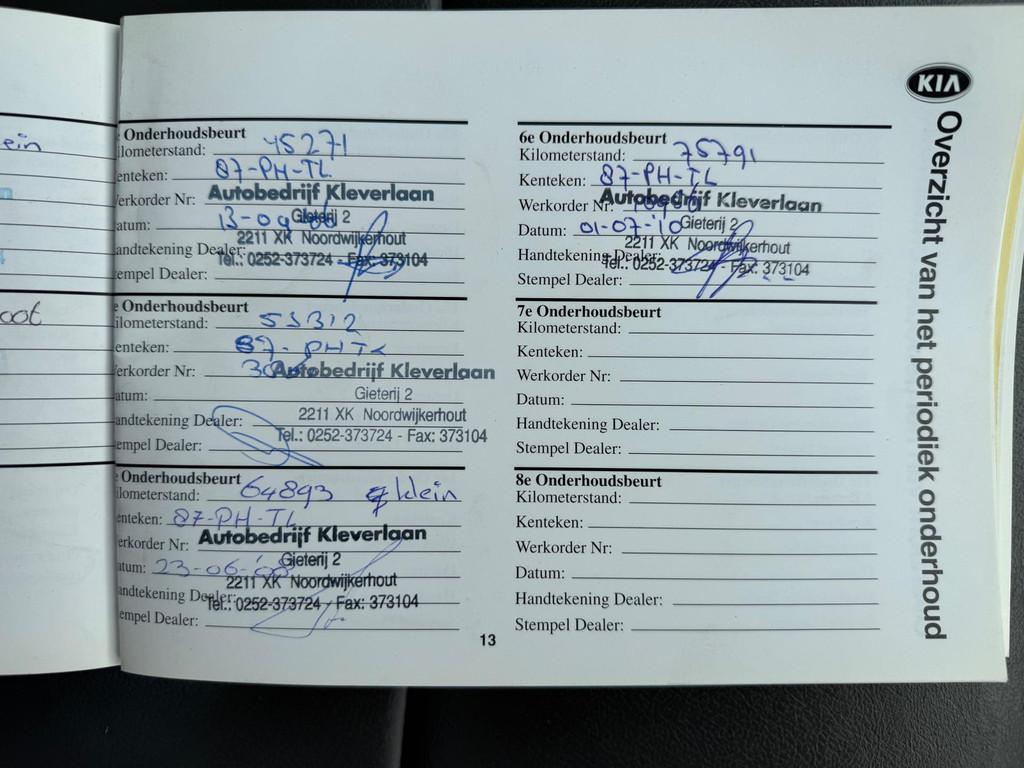 ein
oot
Onderhoudsbeurt
ilometerstand: 45271
enteken: 87-PH-TL
erkorder Nr: Autobedrijf Kleverlaan
atum: 13-09-06 Gieterij 2
2211 XK Noordwijkerhout
andtekening Dealer:
Tel.: 0252-373724 - Fax: 373104
tempel Dealer:
Onderhoudsbeurt
ilometerstand: 53312
enteken: 87-PHTL
erkorder Nr: Autobedrijf Kleverlaan
atum: Gieterij 2
2211 XK Noordwijkerhout
andtekening Dealer:
Tel.: 0252-373724 - Fax: 373104
empel Dealer:
Onderhoudsbeurt
ilometerstand: 64893 klein
enteken: 87-PH-TL
erkorder Nr: Autobedrijf Kleverlaan
atum: 23-06-'08 Gieterij 2
2211 XK Noordwijkerhout
andtekening Dealer:
Tel.: 0252-373724 Fax: 373104
empel Dealer:
13
6e Onderhoudsbeurt
Kilometerstand: 75791
Kenteken: 87-PH-TL
Werkorder Nr: Autobedrijf Kleverlaan
Datum: 01-07-'10 Gieterij 2
2211 XK Noordwijkerhout
Handtekening Dealer:
Tel.: 0252-373724 - Fax: 373104
Stempel Dealer:
7e Onderhoudsbeurt
Kilometerstand:
Kenteken:
Werkorder Nr:
Datum:
Handtekening Dealer:
Stempel Dealer:
8e Onderhoudsbeurt
Kilometerstand:
Kenteken:
Werkorder Nr:
Datum:
Handtekening Dealer:
Stempel Dealer:
KIA
Overzicht van het periodiek onderhoud